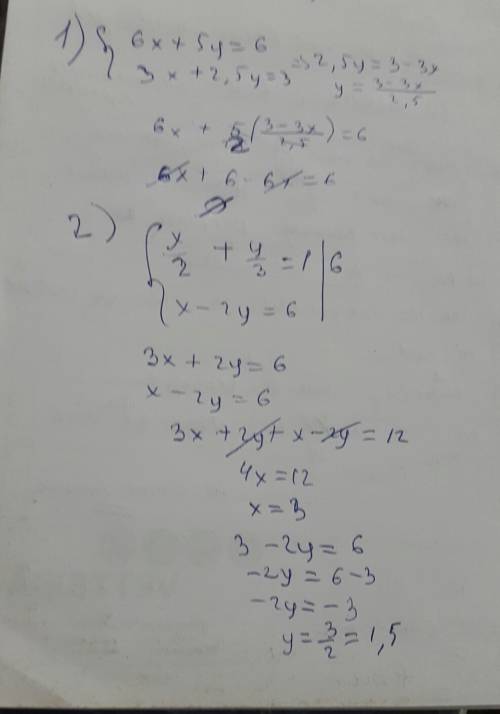 1) { 6x + 5y = 6
3x + 2,5y = 3 => 2,5y = 3 - 3x
y = (3 - 3x)/2,5
6x + 5/2 ((3 - 3x)/2,5) = 6
6x + 6 - 6x = 6
2) { x/2 + y/3 = 1 | 6
x - 2y = 6
3x + 2y = 6
x - 2y = 6
3x + 2y + x - 2y = 12
4x = 12
x = 3
3 - 2y = 6
-2y = 6 - 3
-2y = -3
y = 3/2 = 1,5